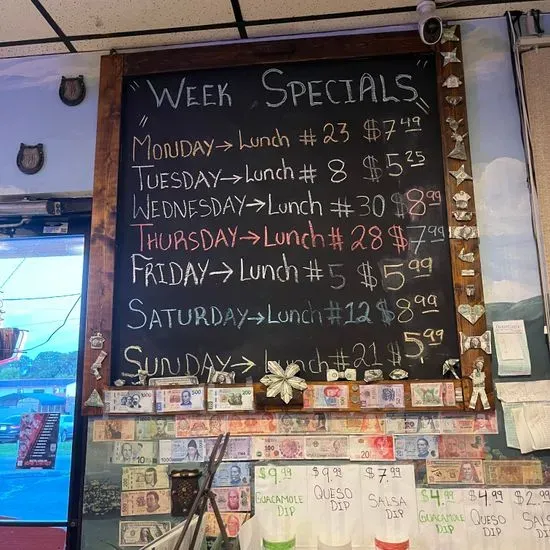 "WEEK SPECIALS"
MONDAY→ Lunch #23 $7.49
TUESDAY→ Lunch #8 $5.25
WEDNESDAY→ Lunch #30 $8.99
THURSDAY→ Lunch #28 $7.99
FRIDAY→ Lunch #5 $5.99
SATURDAY→ Lunch #12 $8.99
SUNDAY→ Lunch #21 $5.99
$9.99
GUACAMOLE
DIP
$9.99
QUESO
DIP
$7.99
SALSA
DIP
$4.99
GUACAMOLE
DIP
$4.99
QUESO
DIP
$2.99